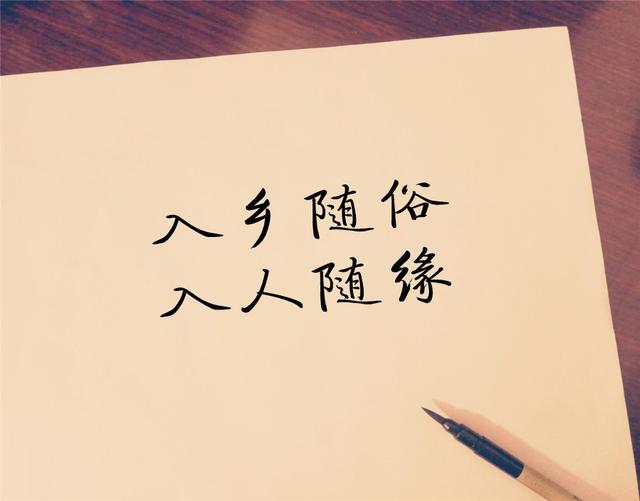 入乡随俗
入人随缘